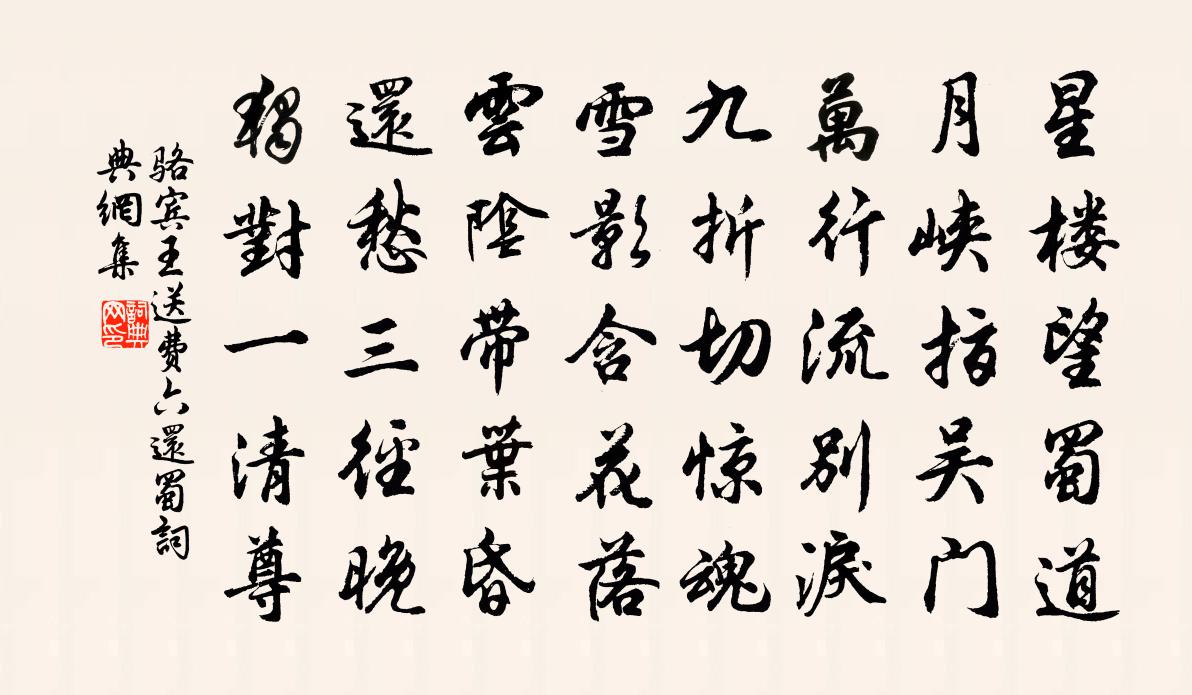 星楼望蜀道
月峡指吴门
萬行流别淚
九折切惊魂
雪影含花落
雲陰带葉昏
還愁三徑晚
獨對一清尊
骆宾王送費六還蜀詞
典網集
詞典
网印